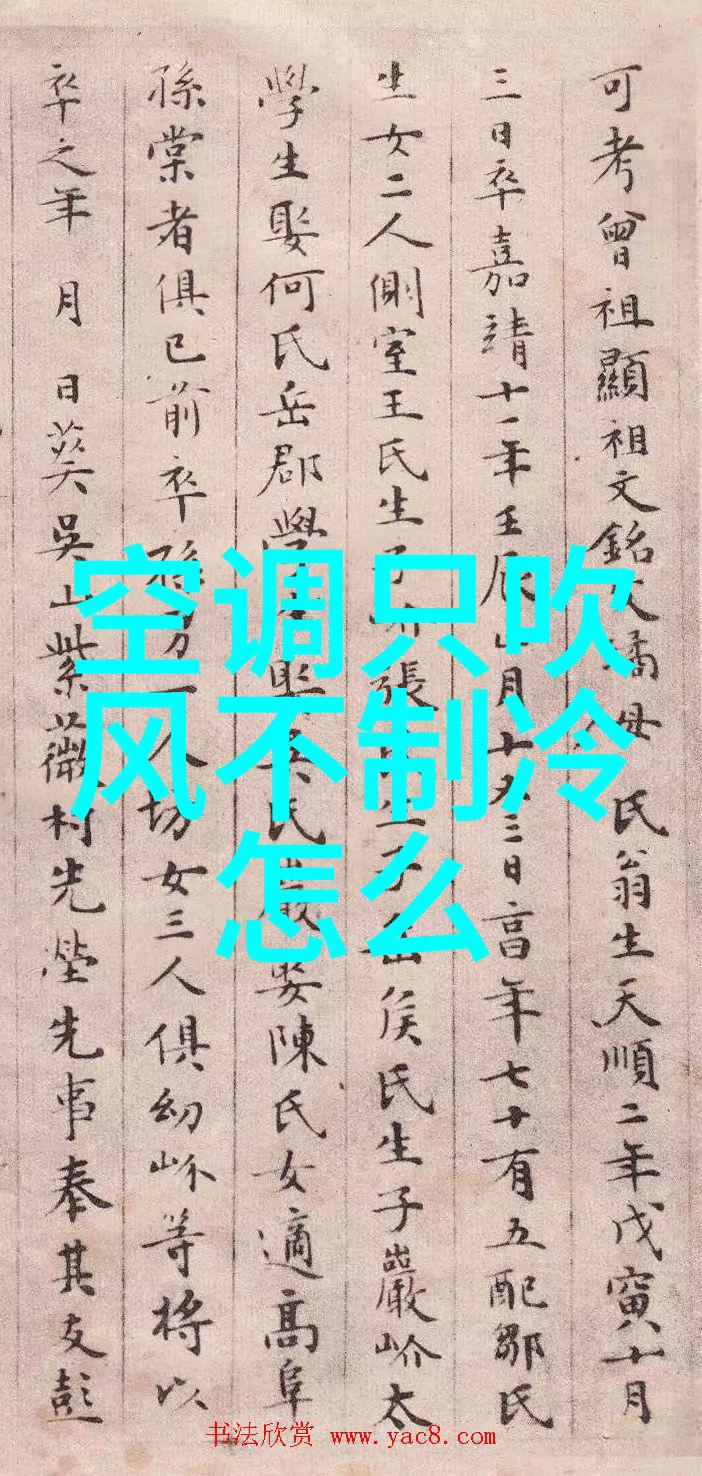 可考曾祖顯祖文銘父璚母 氏翁生天順二年戊寅十月
三日卒嘉靖十一年壬辰 月十又三日高年七十有五配鄒氏
生女二人側室王氏生子 張 生子岳侯氏生子巖岕太
學生娶何氏岳郡學生娶吳氏巖娶陳氏女適高阜
孫棠者俱已前卒孫男一人切女三人俱幼岕等將以
卒之年 月 日葬吳山紫薇村先塋先事奉其友彭
空调只吹
风不制冷
怎么
书法欣赏 www.yac8.com